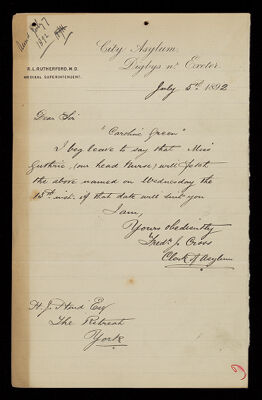 1892
City Asylum,
Digbys nr. Exeter.
R. L. RUTHERFORD, M.D.
MEDICAL SUPERINTENDENT.
July 5th 1892
Dear Sir
"Caroline Green"
I beg leave to say that Miss
Guthrie, (our head Nurse) will fetch
the above named on Wednesday the
13th inst. if that date will suit you
I am,
Yours obediently
Fredk. J. Cross
Clerk of Asylum
H. J. Esq
The Retreat
York